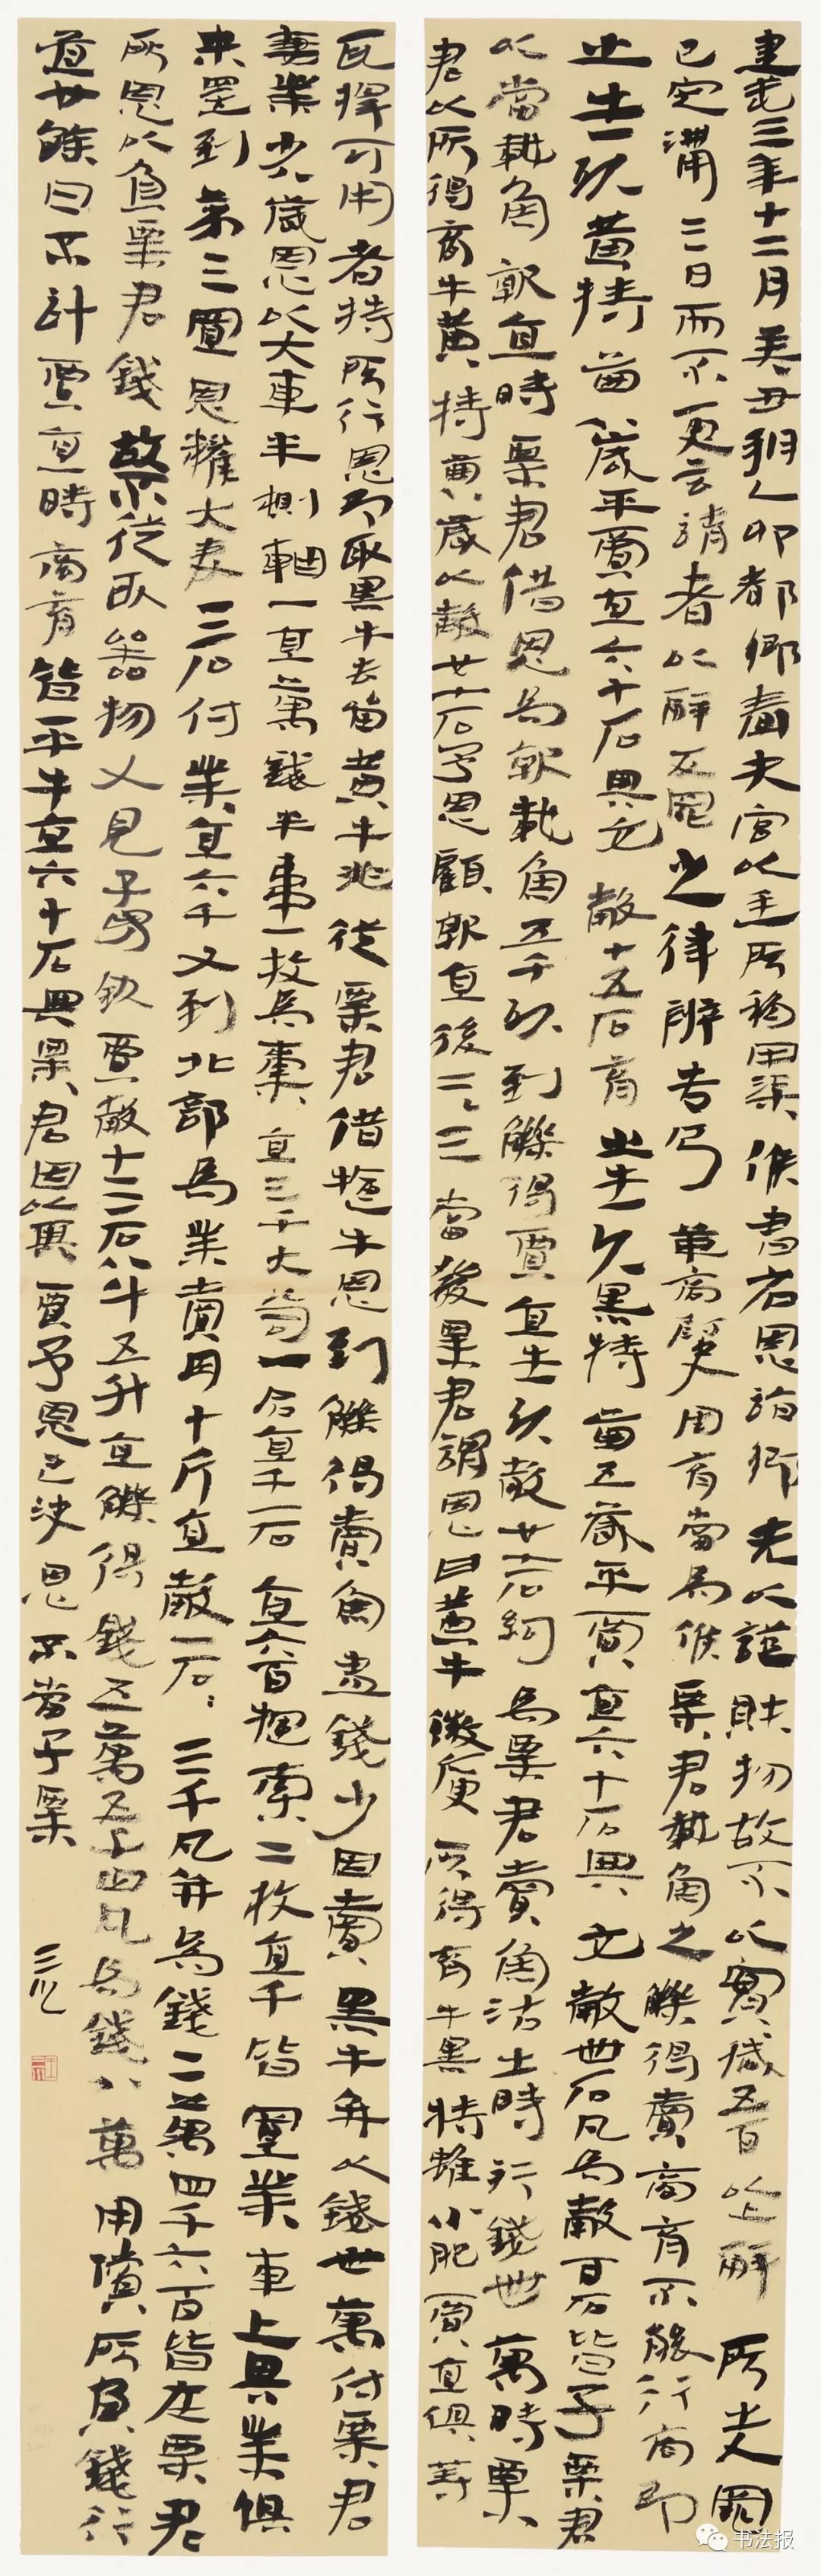 建武三年十二月癸丑朔乙卯都鄉嗇夫宮以廷所移甲渠候書召恩詣鄉先以證財物故不以實臧五百以上辭所出入罪
已定滿三日而不更言請者以辭反罪之律辨告乃華商尉史周育當為候粟君載魚之觻得賣商育不能行商即
出牛一頭黃特齒八歲平賈直六十石與它穀十五石育出牛一頭黑特齒五歲平賈直六十石與它穀卌石凡為穀百石皆予粟君
以當載魚就直時粟君借恩為就載魚五千頭到觻得賈直牛一頭穀廿七石約為粟君賣魚沽出時行錢卌萬時粟
君以所得商牛黃特黃歲以穀廿七石予恩顧就直後二三當發粟君謂恩曰黃牛微庾所得育牛黑特雖小肥賈直俱等
耳擇可用者持所行恩即取黑牛去留黃牛非從粟君借牛恩到觻得賣魚盡錢少因賣黑牛并以錢卅萬付粟君
妻業少八歲恩以大車半側軸一直萬錢羊韋一枚為橐直三千大笥一合直千一石直六百索二枚直千皆置業車上與業俱
來還到第三置恩糴大麥二石付業直六千又到北部為業賣肉十斤直穀一石石三千凡并為錢二萬四千六百皆在粟君
所恩以負粟君錢故不從取器物又見子男欽賈穀十三石八斗五升直觻得錢五萬五千四凡為錢八萬用償所負錢行
道廿餘日不計賈直時商育皆平牛直六十石與粟君因以其賈予恩已決恩不當予粟
书法报